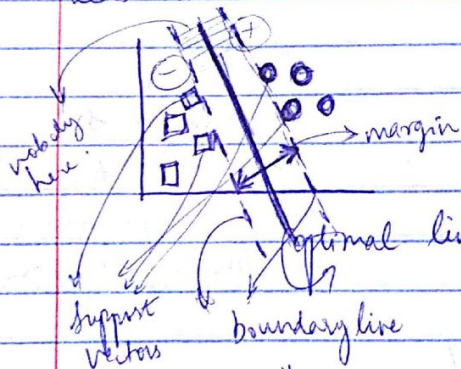 +
-
nobody
here.
margin
optimal li
support
vectors
boundary line